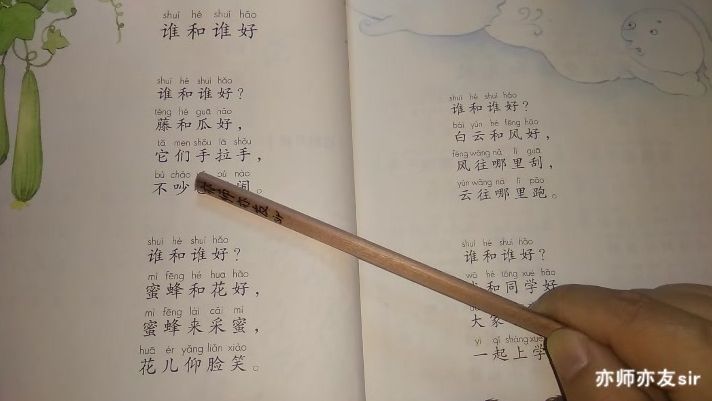 shuí hé shuí hǎo
谁和谁好
shuí hé shuí hǎo
谁和谁好？
téng hé guā hǎo
藤和瓜好，
tā men shǒu lā shǒu
它们手拉手，
bù chǎo nào
不吵 闹。
shuí hé shuí hǎo
谁和谁好？
mì fēng hé huā hǎo
蜜蜂和花好，
mì fēng lái cǎi mì
蜜蜂来采蜜，
huā ér yǎng liǎn xiào
花儿仰脸笑。
shuí hé shuí hǎo
谁和谁好？
bái yún hé fēng hǎo
白云和风好，
fēng wǎng nǎ lǐ guā
风往哪里刮，
yún wǎng nǎ lǐ pǎo
云往哪里跑。
shuí hé shuí hǎo
谁和谁好？
wǒ hé tóng xué hǎo
和同学好
大家
yì qǐ shàng xué
一起上学
亦师亦友sir